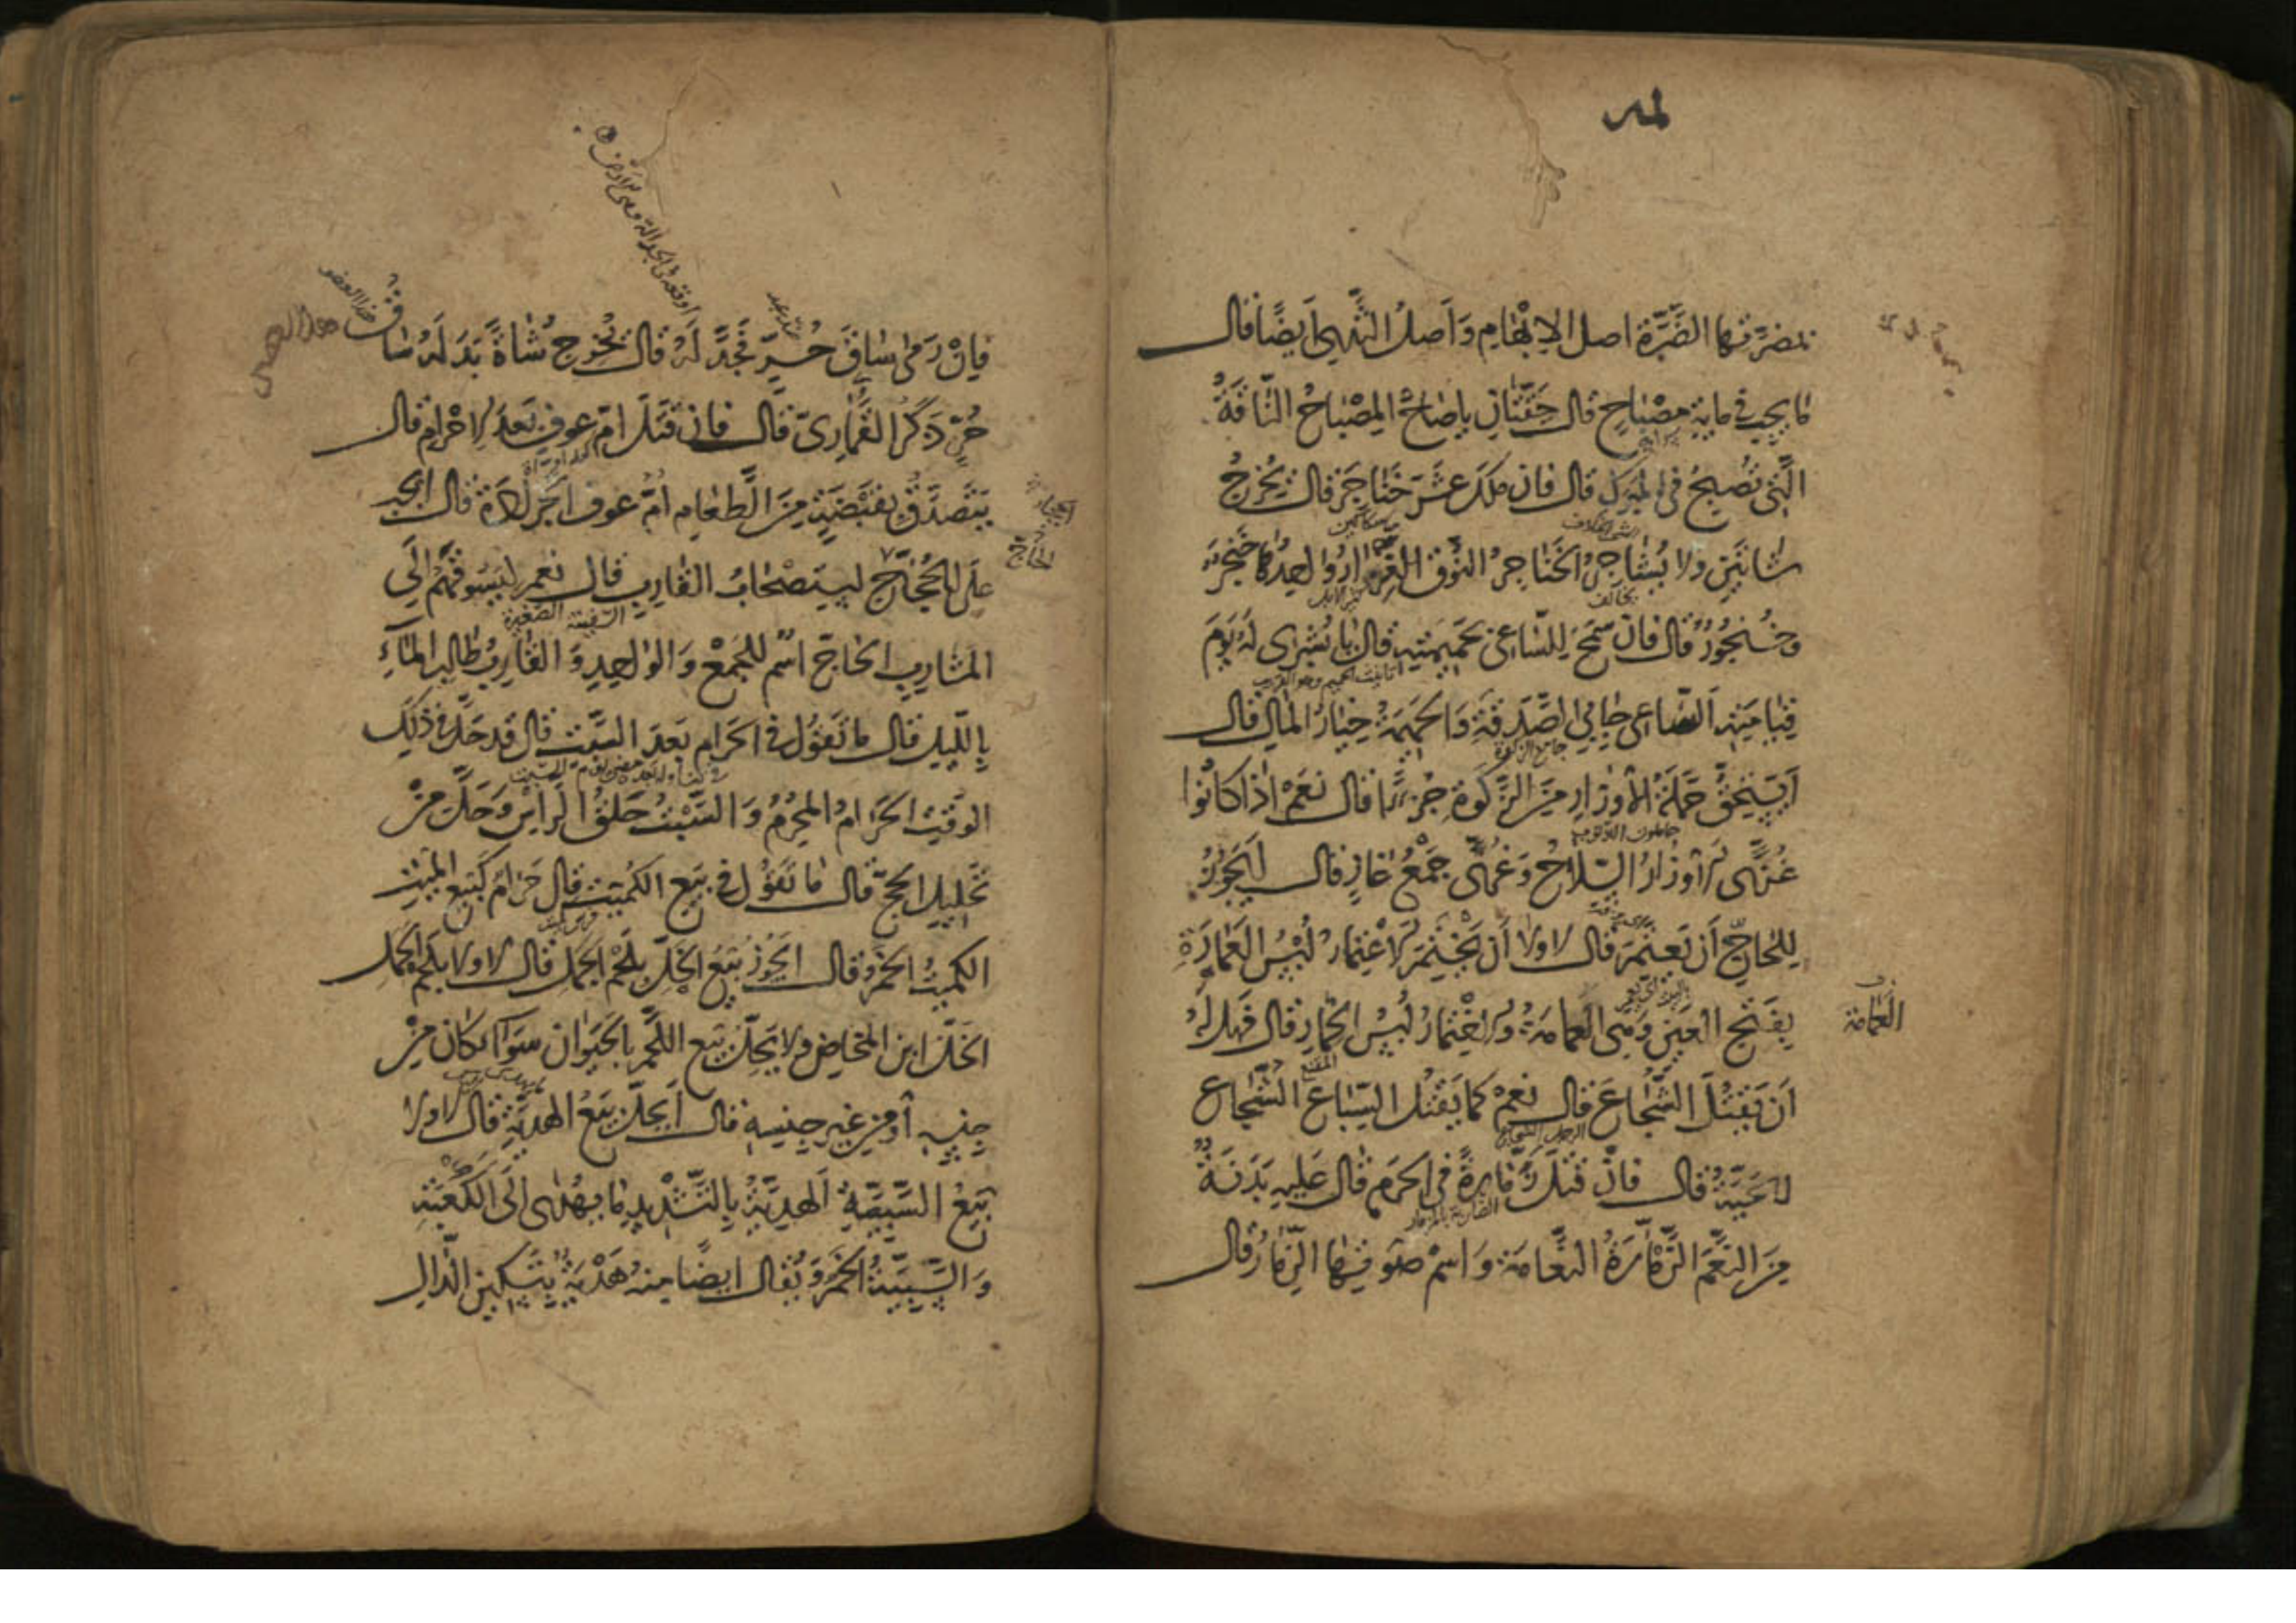 تمضرتها الضرة اصل الابهام واصل الثدي ايضا قال
ما يجب في ماية مصباح قال حقتان ياصاح المصباح الناقة
التي تصبح في المبرك قال فان ملك عشر خناجر قال يخرج
شاتين ولا يشاجر الخناجر النوق الغزار الواحد كا خنجر
وخنجور قال فان سمح للساعي بحميمته قال يا بشرى له يوم
قيامته الساعي جابي الصدقة والحميمة خيار المال قال
ايستحق حملة الاوزار من الزكوة جزءا قال نعم اذا كانوا
غزى الاوزار السلاح وغزى جمع غاز قال ايجوز
للحاج ان يعتمر قال لا ولا ان يختمر الاعتمار لبس العمارة
بفتح العين وهي العمامة والاختمار لبس الخمار قال فهل له
ان يقتل الشجاع قال نعم كما يقتل السباع الشجاع
الحية قال فان قتل زمارة في الحرم قال عليه بدنة
من النعم الزمارة النعامة واسم صوتها الزمار قال
العمامة
فان رمى ساق حر فجدله قال يخرج شاة بدله ساق
حر ذكر القماري قال فان قتل ام عوف بعد الاحرام قال
يتصدق بقبضة من الطعام ام عوف الجرادة قال ايجب
على الحجاج استصحاب القارب قال نعم ليسوقهم الى
المشارب الحاج اسم للجمع والواحد والقارب طالب الماء
بالليل قال ما تقول في الحرام بعد السبت قال قد حل في ذلك
الوقت الحرام المحرم والسبت حلق الراس وحل من
تحليل الحج قال ما تقول في بيع الكميت قال حرام كبيع الميت
الكميت الخمر وقال ايجوز بيع الخل بلحم الجمل قال لا ولا بلحم الحمل
الخل ابن المخاض ولا يحل بيع اللحم بالحيوان سواء كان من
جنسه او من غير جنسه قال ايحل بيع الهدية قال لا ولا
بيع السبية الهدية بالتشديد ما يهدى الى الكعبة
والسبية الخمر ويقال ايضا منه هدية بتسكين الدال
الحاج